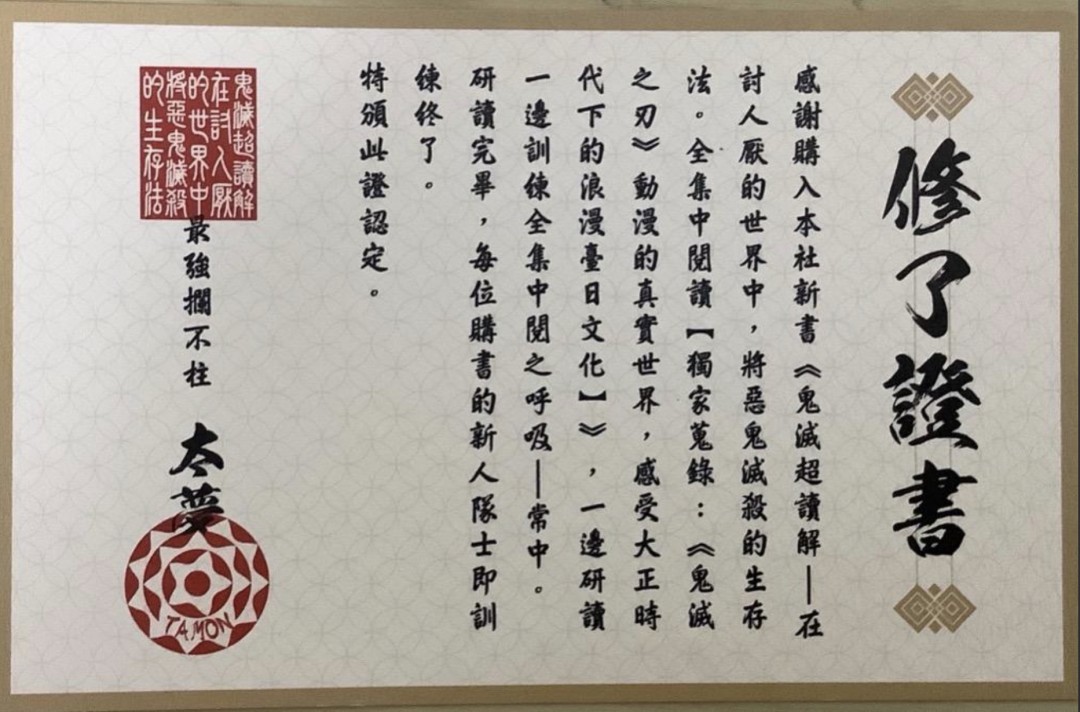 修了證書
感謝購入本社新書《鬼滅超讀解──在
討人厭的世界中，將惡鬼滅殺的生存
法。全集中閱讀【獨家蒐錄：《鬼滅
之刃》動漫的真實世界，感受大正時
代下的浪漫臺日文化】》，一邊研讀
一邊訓練全集中閱之呼吸─常中。
研讀完畢，每位購書的新人隊士即訓
練終了。
特頒此證認定。
鬼滅超讀解
在討人厭
的世界中
將惡鬼滅殺
的生存法
最強擱不柱
太夢
TAMON